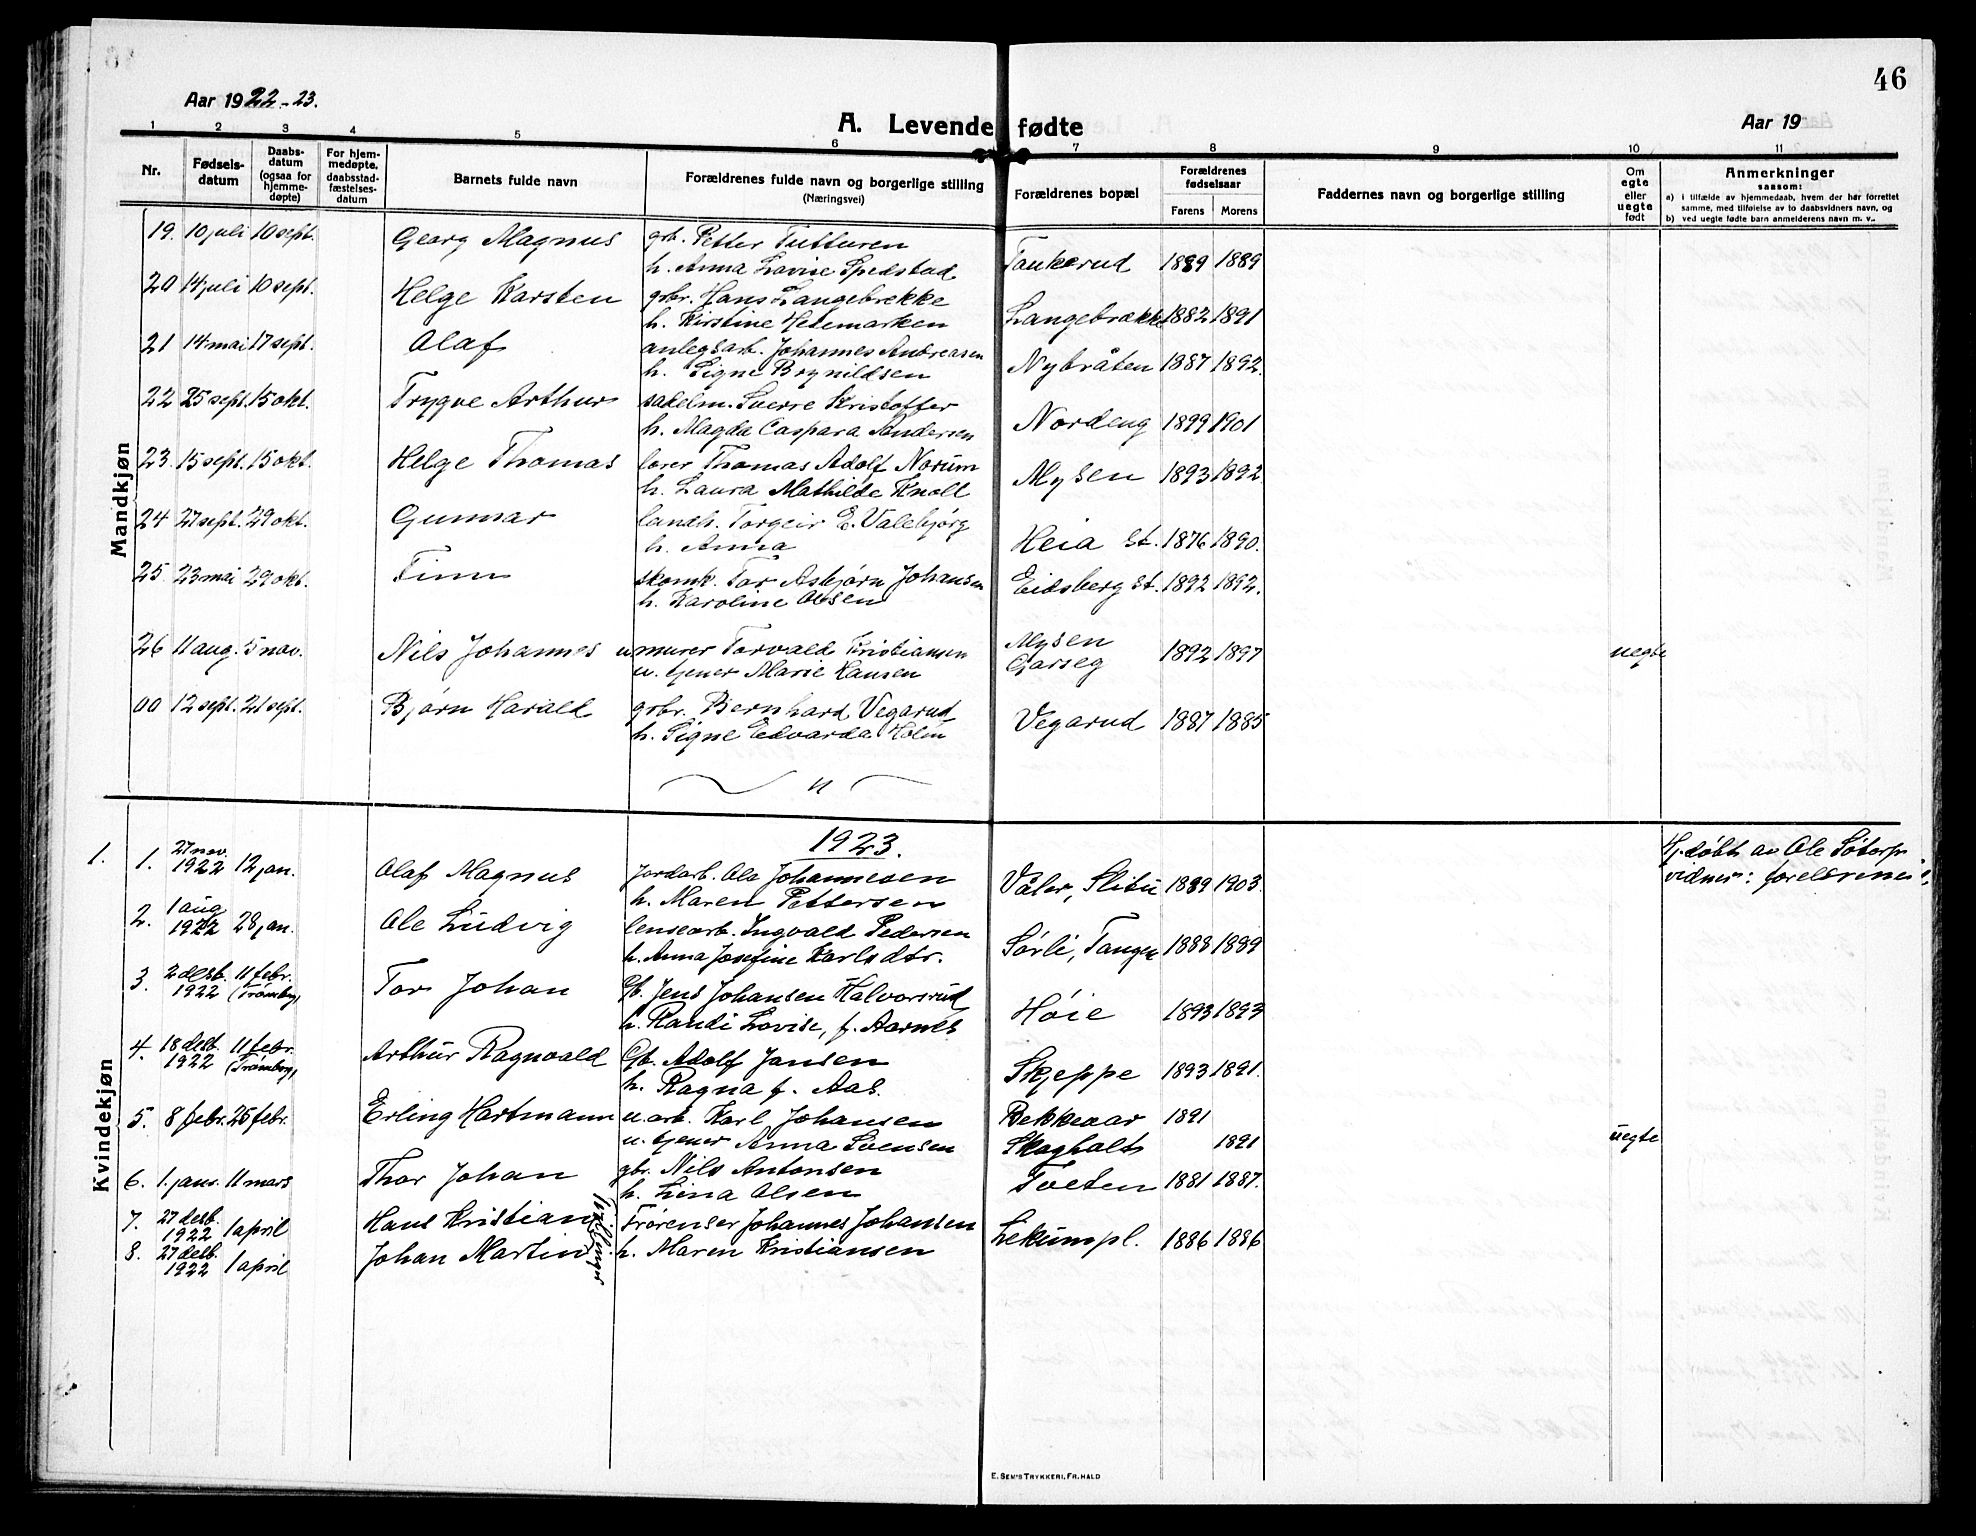 46
Aar 1922-23.
A. Levende fødte
Aar 19
1 2 3 4 5 6 7 8 9 10 11
Nr.
Fødselsdatum
Daabsdatum (ogsaa for hjemmedøpte)
For hjemmedøpte. daabsstadfæstelsesdatum
Barnets fulde navn
Forældrenes fulde navn og borgerlige stilling (Næringsvei)
Forældrenes bopæl
Forældrenes fødselsaar
Farens Morens
Faddernes navn og borgerlige stilling
Om egte eller uegte født
Anmerkninger
saasom:
a) i tilfælde av hjemmedaab, hvem der hør forrettet samme, med tilføielse av to daabsvidners navn, og
b) ved uegte fødte barn anmelderens navn m. v..
Mandkjøn
19. 10 juli 10 sept. Georg Magnus grb. Petter Tutturen
h. Anna Lovise Spedstad Tankerud 1889 1889
20 14 juli 10 sept. Helge Karsten gsbr. Hans Langebrekke
h. Kirstine Hetemarken Langebrække 1882 1891
21 14 mai 17 sept. Olaf anlegsarb. Johannes Andreasen
h. Signe Brynildsen Nybråten 1887 1892.
22 25 sept. 15 okt. Trygve Arthur sadelm. Sverre Kristoffer
h. Magda Caspara Andersen Nordeng 1899 1901
23. 15 sept. 15 okt. Helge Thomas lærer Thomas Adolf Norum
h. Laura Mathilde Knoll Mysen 1893 1892
24 27 sept. 29 okt. Gunnar landh. Torgeir E. Valebjørg
h. Anna Heia st. 1876 1890.
25. 23 mai 29 okt. Finn skomk. Tor Asbjørn Johansen
h. Karoline Olsen Eidsberg st. 1892 1892.
26 11 aug. 5 nov. Nils Johannes u murer Torvald Kristiansen Mysen
u. tjener Marie Hansen Garseg 1892 1897 uegte
00 12 sept. 21 sept. Bjørn Harald grbr. Bernhard Vegarud
h. Signe Edvarda Holm Vegarud 1887 1885
"
1923.
Kvindekjøn
1. 1. 27 nov. 1922 12 jan. Olaf Magnus Jordarb. Ole Johannesen
h. Maren Pettersen Våler, Slitu 1889 1903. Hj. døbt av Ole
vidner: foreldrene
2. 1 aug 1922 28 jan. Ole Ludvig lensearb. Ingvald Pedersen
h. Anna Josefine Karlsdtr. Sørli, Tangen 1888 1889
3. 2 desb. 1922 11 febr. (Trømborg) Tor Johan Gb. Jens Johansen Halvorsrud
h. Randi Lovise, f. Aarnes Høie 1893 1893
4. 18 desb. 1922 11 febr. (Trømborg) Arthur Ragnvald Gb. Adolf Jansen
h. Ragna f. Aas. Skjeppe 1893 1891.
5. 8 febr. 25 febr. Erling Hartmann u. arb. Karl Johansen Bekkevar 1891
u. tjener Anna Svensen Skogholt 1891 uegte
6. 1. jan. 11 mars Thor Johan gbr. Nils Antonsen
h. Lina Olsen Tveten 1881 1887.
7. 27 desb. 1922 1 april Hans Kristian Trørenser Johannes Johansen
8. 27 desb. 1922 1 april Johan Martin tvillinger h. Maren Kristiansen Lekumpl. 1886 1886
E. SEM'S TRYKKERI, FR.HALD